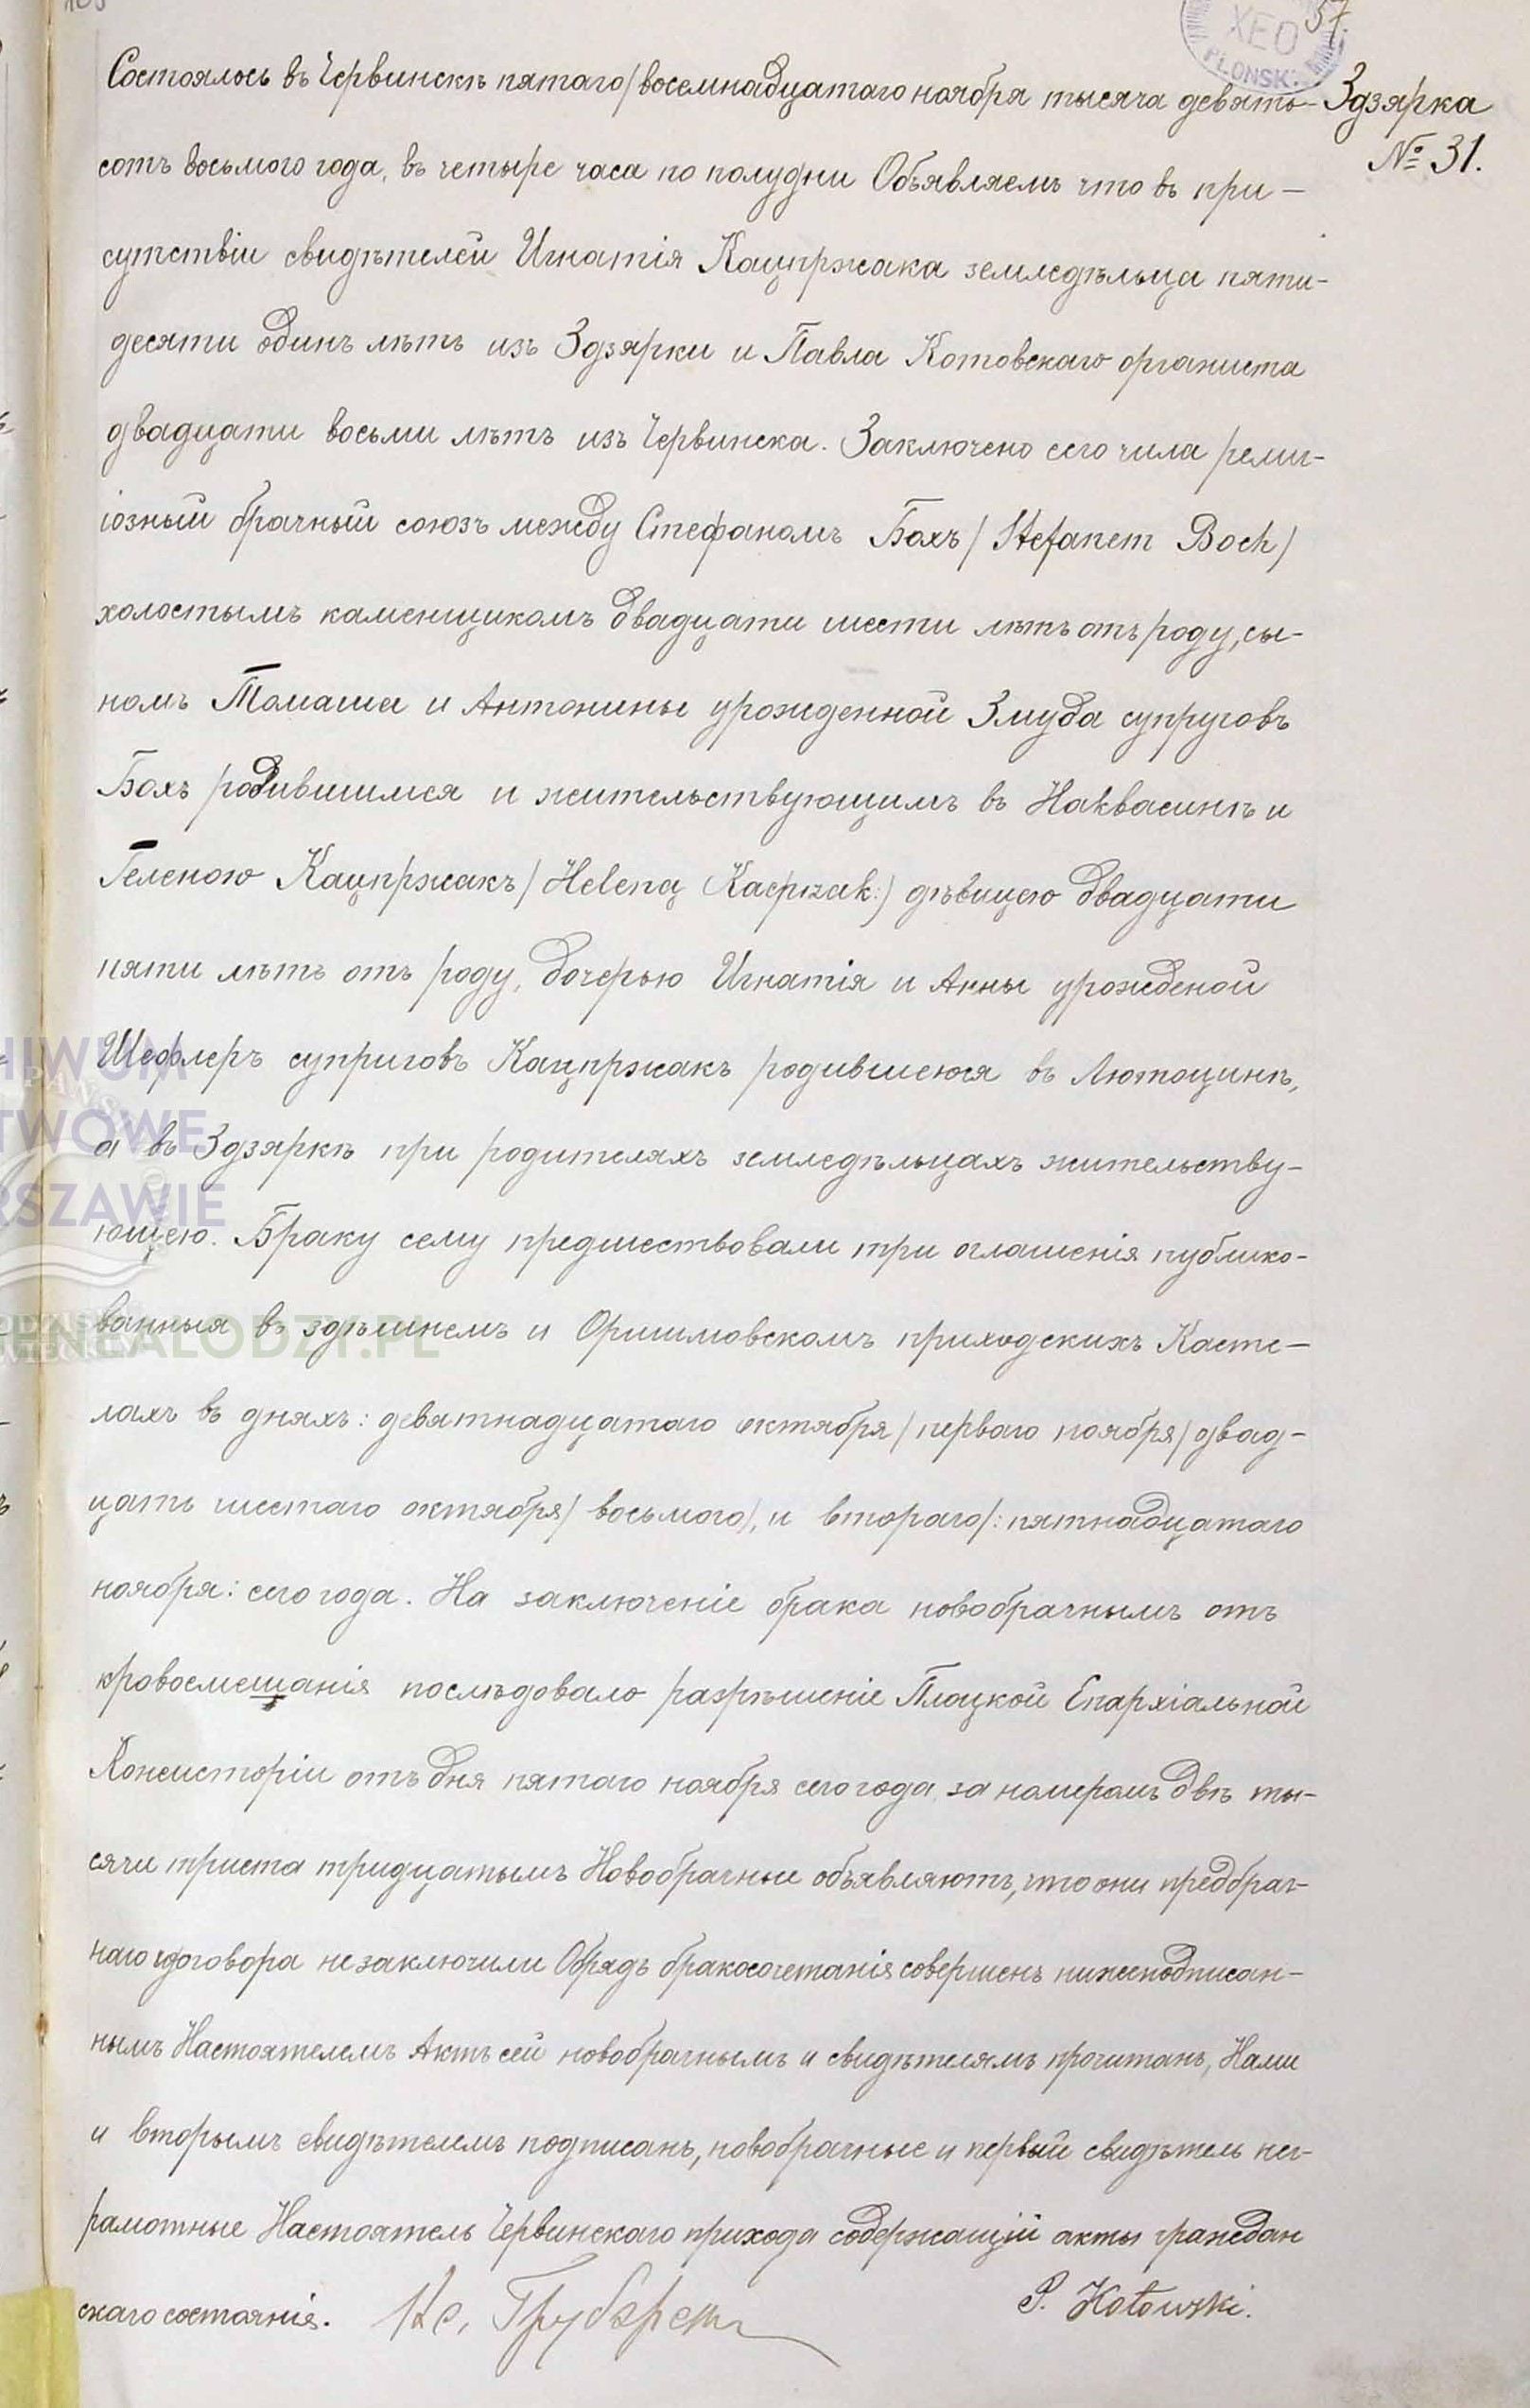 57.
XEO
PŁONSK
Здзярка
№ 31.
Состоялось въ Червинскѣ пятаго/восемнадцатаго ноября тысяча девять-
сотъ восьмого года, въ четыре часа по полудни Объявляемъ что въ при-
сутствіи свидѣтелей Игнатія Кацпржака земледѣльца пяти-
десяти одинъ лѣтъ изъ Здзярки и Павла Котовскаго органиста
двадцати восьми лѣтъ изъ Червинска. Заключено сего чила рели-
гіозный брачный союзъ между Стефаномъ Бохъ/Stefanem Boch/
холостымъ каменщикомъ двадцати шести лѣтъ отъ роду, сы-
номъ Томаша и Антонины урожденной Змуда супруговъ
Бохъ родившимся и жительствующимъ въ Наквасинѣ и
Геленою Кацпржакъ/Heleną Kacprzak:/ дѣвицею двадцати
пяти лѣтъ отъ роду, дочерью Игнатія и Анны урожденой
Шефлеръ суприговъ Кацпржакъ родившеюся въ Лютоцинѣ,
а въ Здзяркѣ при родителяхъ земледѣльцахъ жительству-
ющею. Браку сему предшествовали три оглашенія публико-
ванныя въ здѣшнемъ и Оришмовскомъ приходскихъ Косте-
лахъ въ дняхъ: девятнадцатаго октября/перваго ноября/двад-
цать шестаго октября/восьмого/, и втораго/:пятнадцатаго
ноября: сего года. На заключеніе брака новобрачнымъ отъ
кровосмешанія послѣдовало разрѣшеніе Плоцкой Епархіальной
Консисторіи отъ дня пятаго ноября сего года за номеромъ двѣ ты-
сячи триста тридцатымъ Новобрачные объявляютъ, что они предбрач-
наго договора не заключили Обрядъ бракосочетанія совершенъ нижеподписан-
нымъ Настоятелемъ Актъ сей новобрачнымъ и свидѣтелямъ прочитанъ, Нами
и вторымъ свидѣтелемъ подписанъ, новобрачные и первый свидѣтель нег-
рамотные Настоятель Червинскаго прихода содержащій акты граждан
скаго состоянія. Кс.
P. Kotowski.
HIWUM
TWOWE
RSZAWIE
ENEALODZY.PL